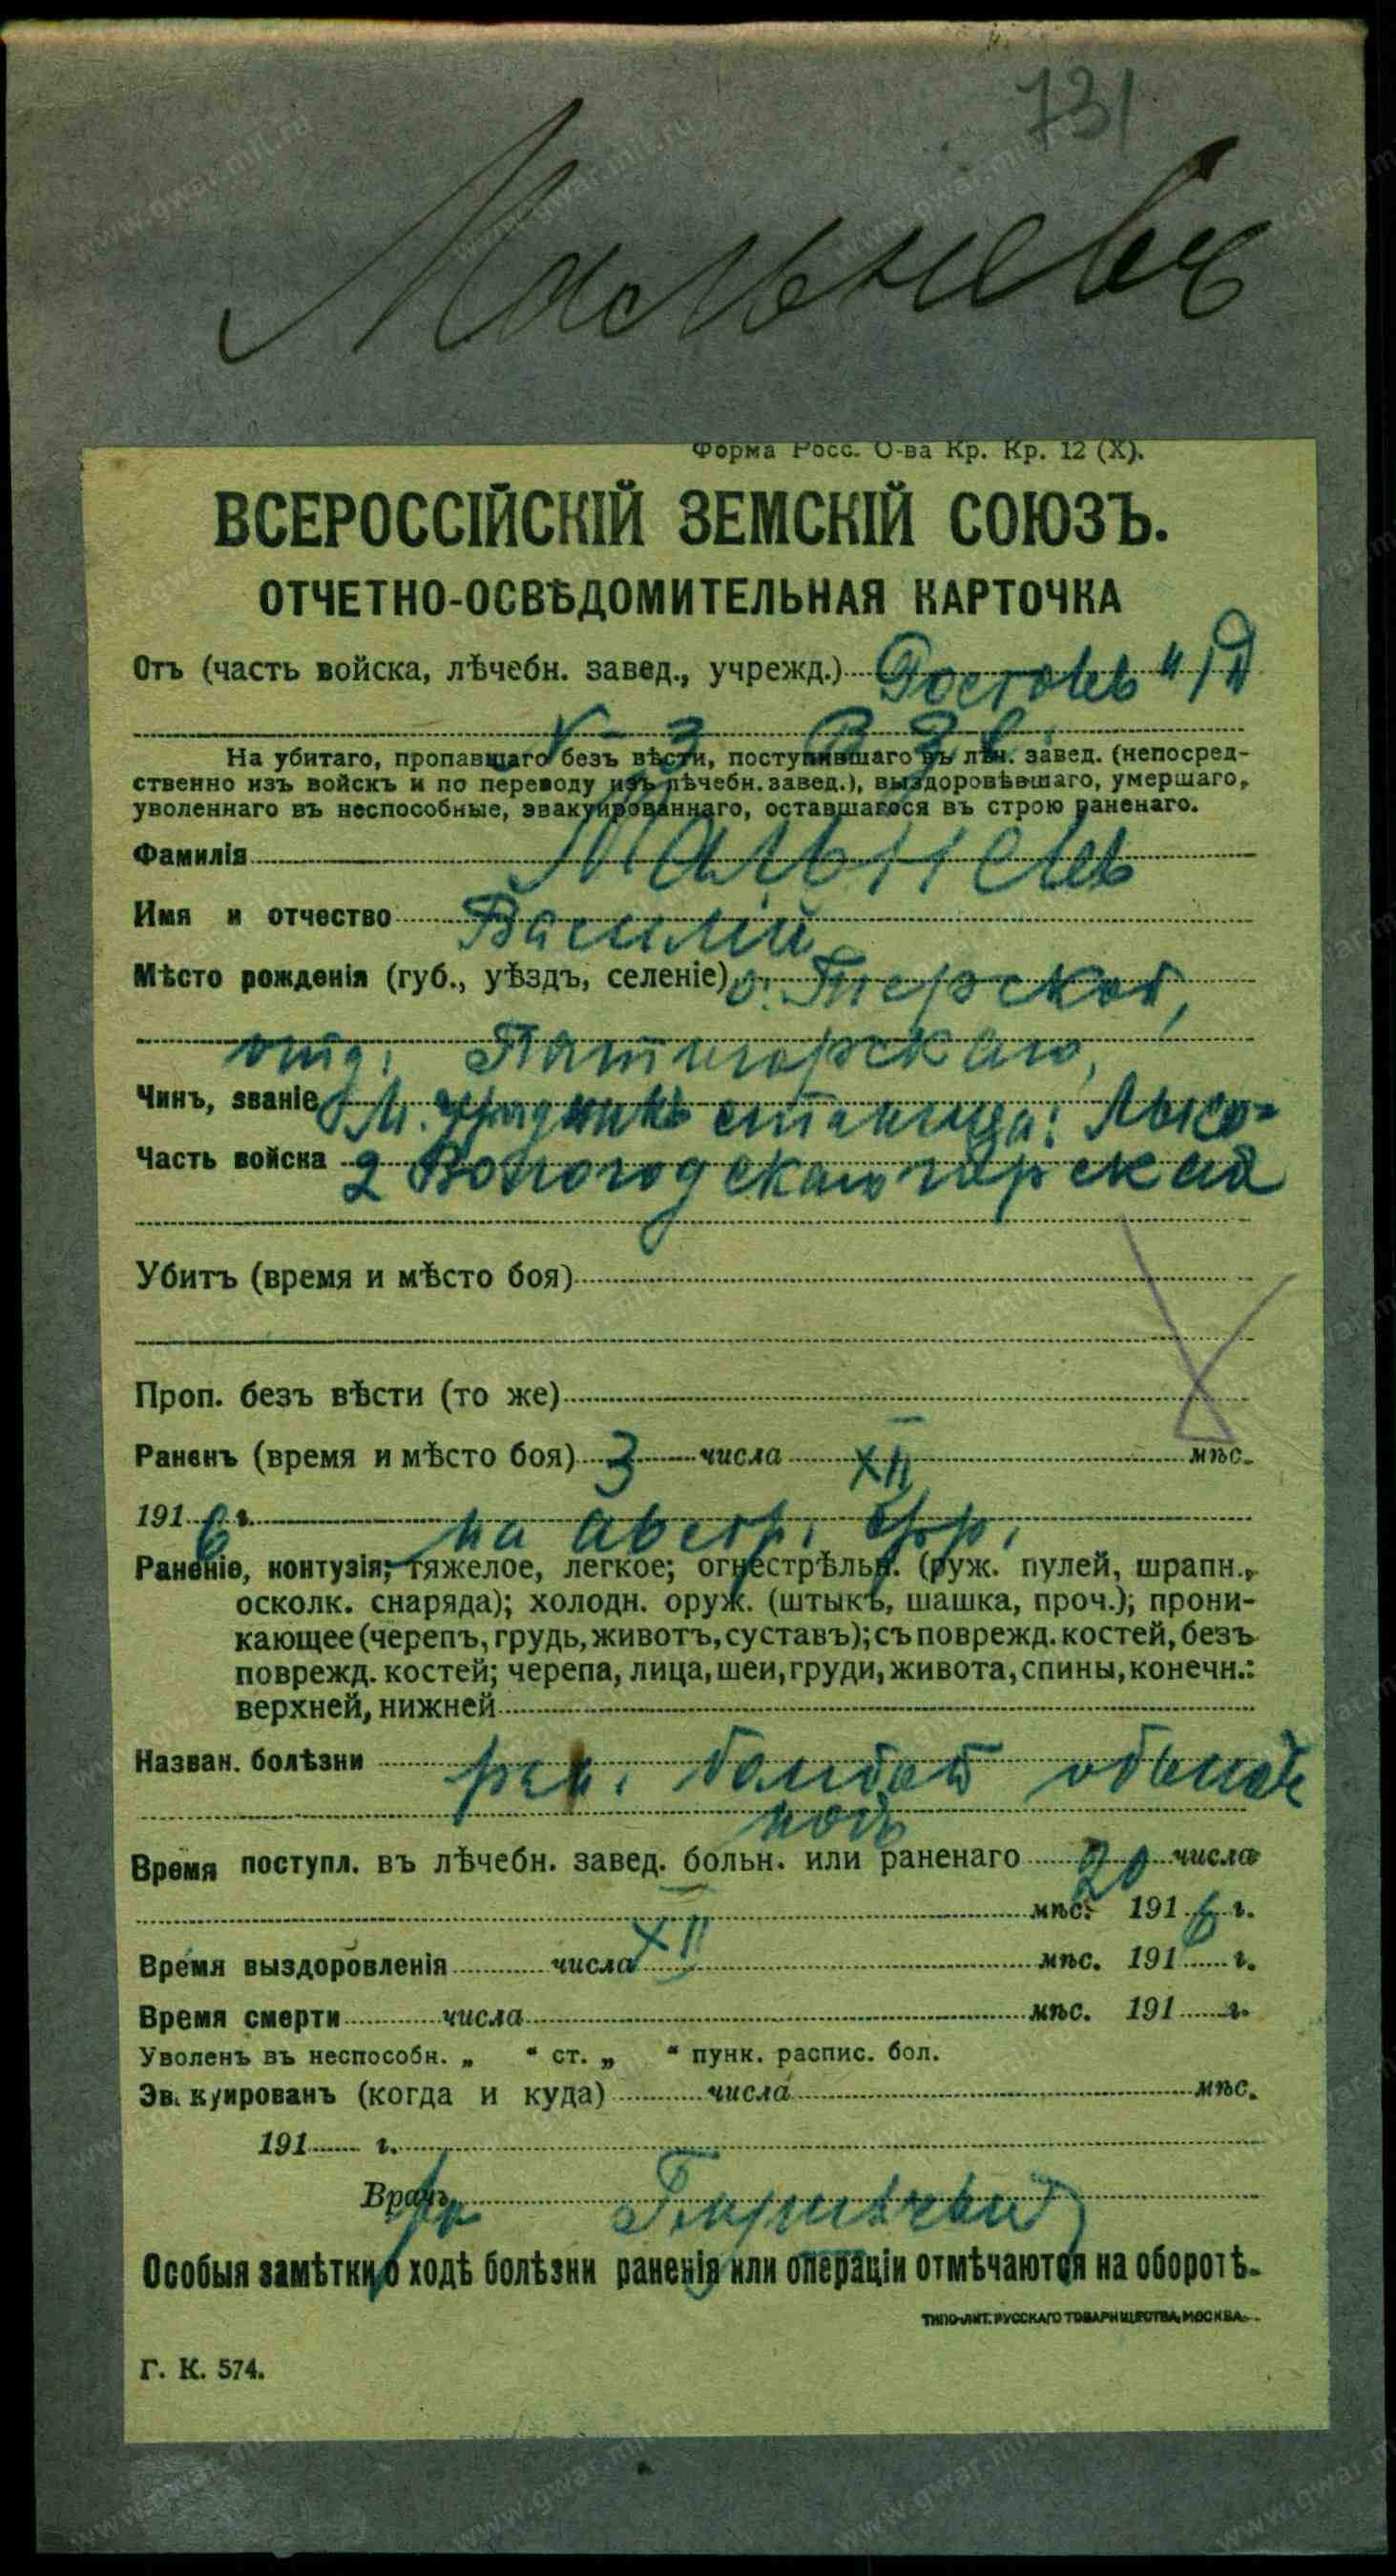 731
Мальневъ
Форма Росс. О-ва Кр. Кр. 12 (X).
ВСЕРОССІЙСКІЙ ЗЕМСКІЙ СОЮЗЪ.
ОТЧЕТНО-ОСВѢДОМИТЕЛЬНАЯ КАРТОЧКА
Отъ (часть войска, лѣчебн. завед., учрежд.) Ростовъ н/Д
№ 3
На убитаго, пропавшаго безъ вѣсти, поступившаго въ лѣч. завед. (непосред-
ственно изъ войскъ и по переводу изъ лѣчебн. завед.), выздоровѣвшаго, умершаго,
уволеннаго въ неспособные, эвакуированнаго, оставшагося въ строю раненаго.
Фамилія Мальневъ
Имя и отчество Василій
Мѣсто рожденія (губ., уѣздъ, селеніе) о. Терской,
отд. Пятигорскаго,
Чинъ, званіе Мл. урядникъ станица: Лысо-
Часть войска 2 Вологодскаго горская
Убитъ (время и мѣсто боя)
Проп. безъ вѣсти (то же)
Раненъ (время и мѣсто боя) 3 числа XII мѣс.
1916 г. на австр. фр.
Раненіе, контузія; тяжелое, легкое; огнестрѣльн. (руж. пулей, шрапн.,
осколк. снаряда); холодн. оруж. (штыкъ, шашка, проч.); прони-
кающее (черепъ, грудь, животъ, суставъ); съ поврежд. костей, безъ
поврежд. костей; черепа, лица, шеи, груди, живота, спины, конечн.:
верхней, нижней
Назван. болѣзни ран. бомбой обѣихъ
ногъ
Время поступл. въ лѣчебн. завед. больн. или раненаго 20 числа
XII мѣс. 1916 г.
Время выздоровленія числа мѣс. 191 г.
Время смерти числа мѣс. 191 г.
Уволенъ въ неспособн. „ “ ст. „ “ пунк. распис. бол.
Эвакуированъ (когда и куда) числа мѣс.
191 г.
Врачъ
Особыя замѣтки о ходѣ болѣзни раненія или операціи отмѣчаются на оборотѣ.
ТИПО-ЛИТ. РУССКАГО ТОВАРИЩЕСТВА, МОСКВА.
Г. К. 574.
www.gwar.mil.ru